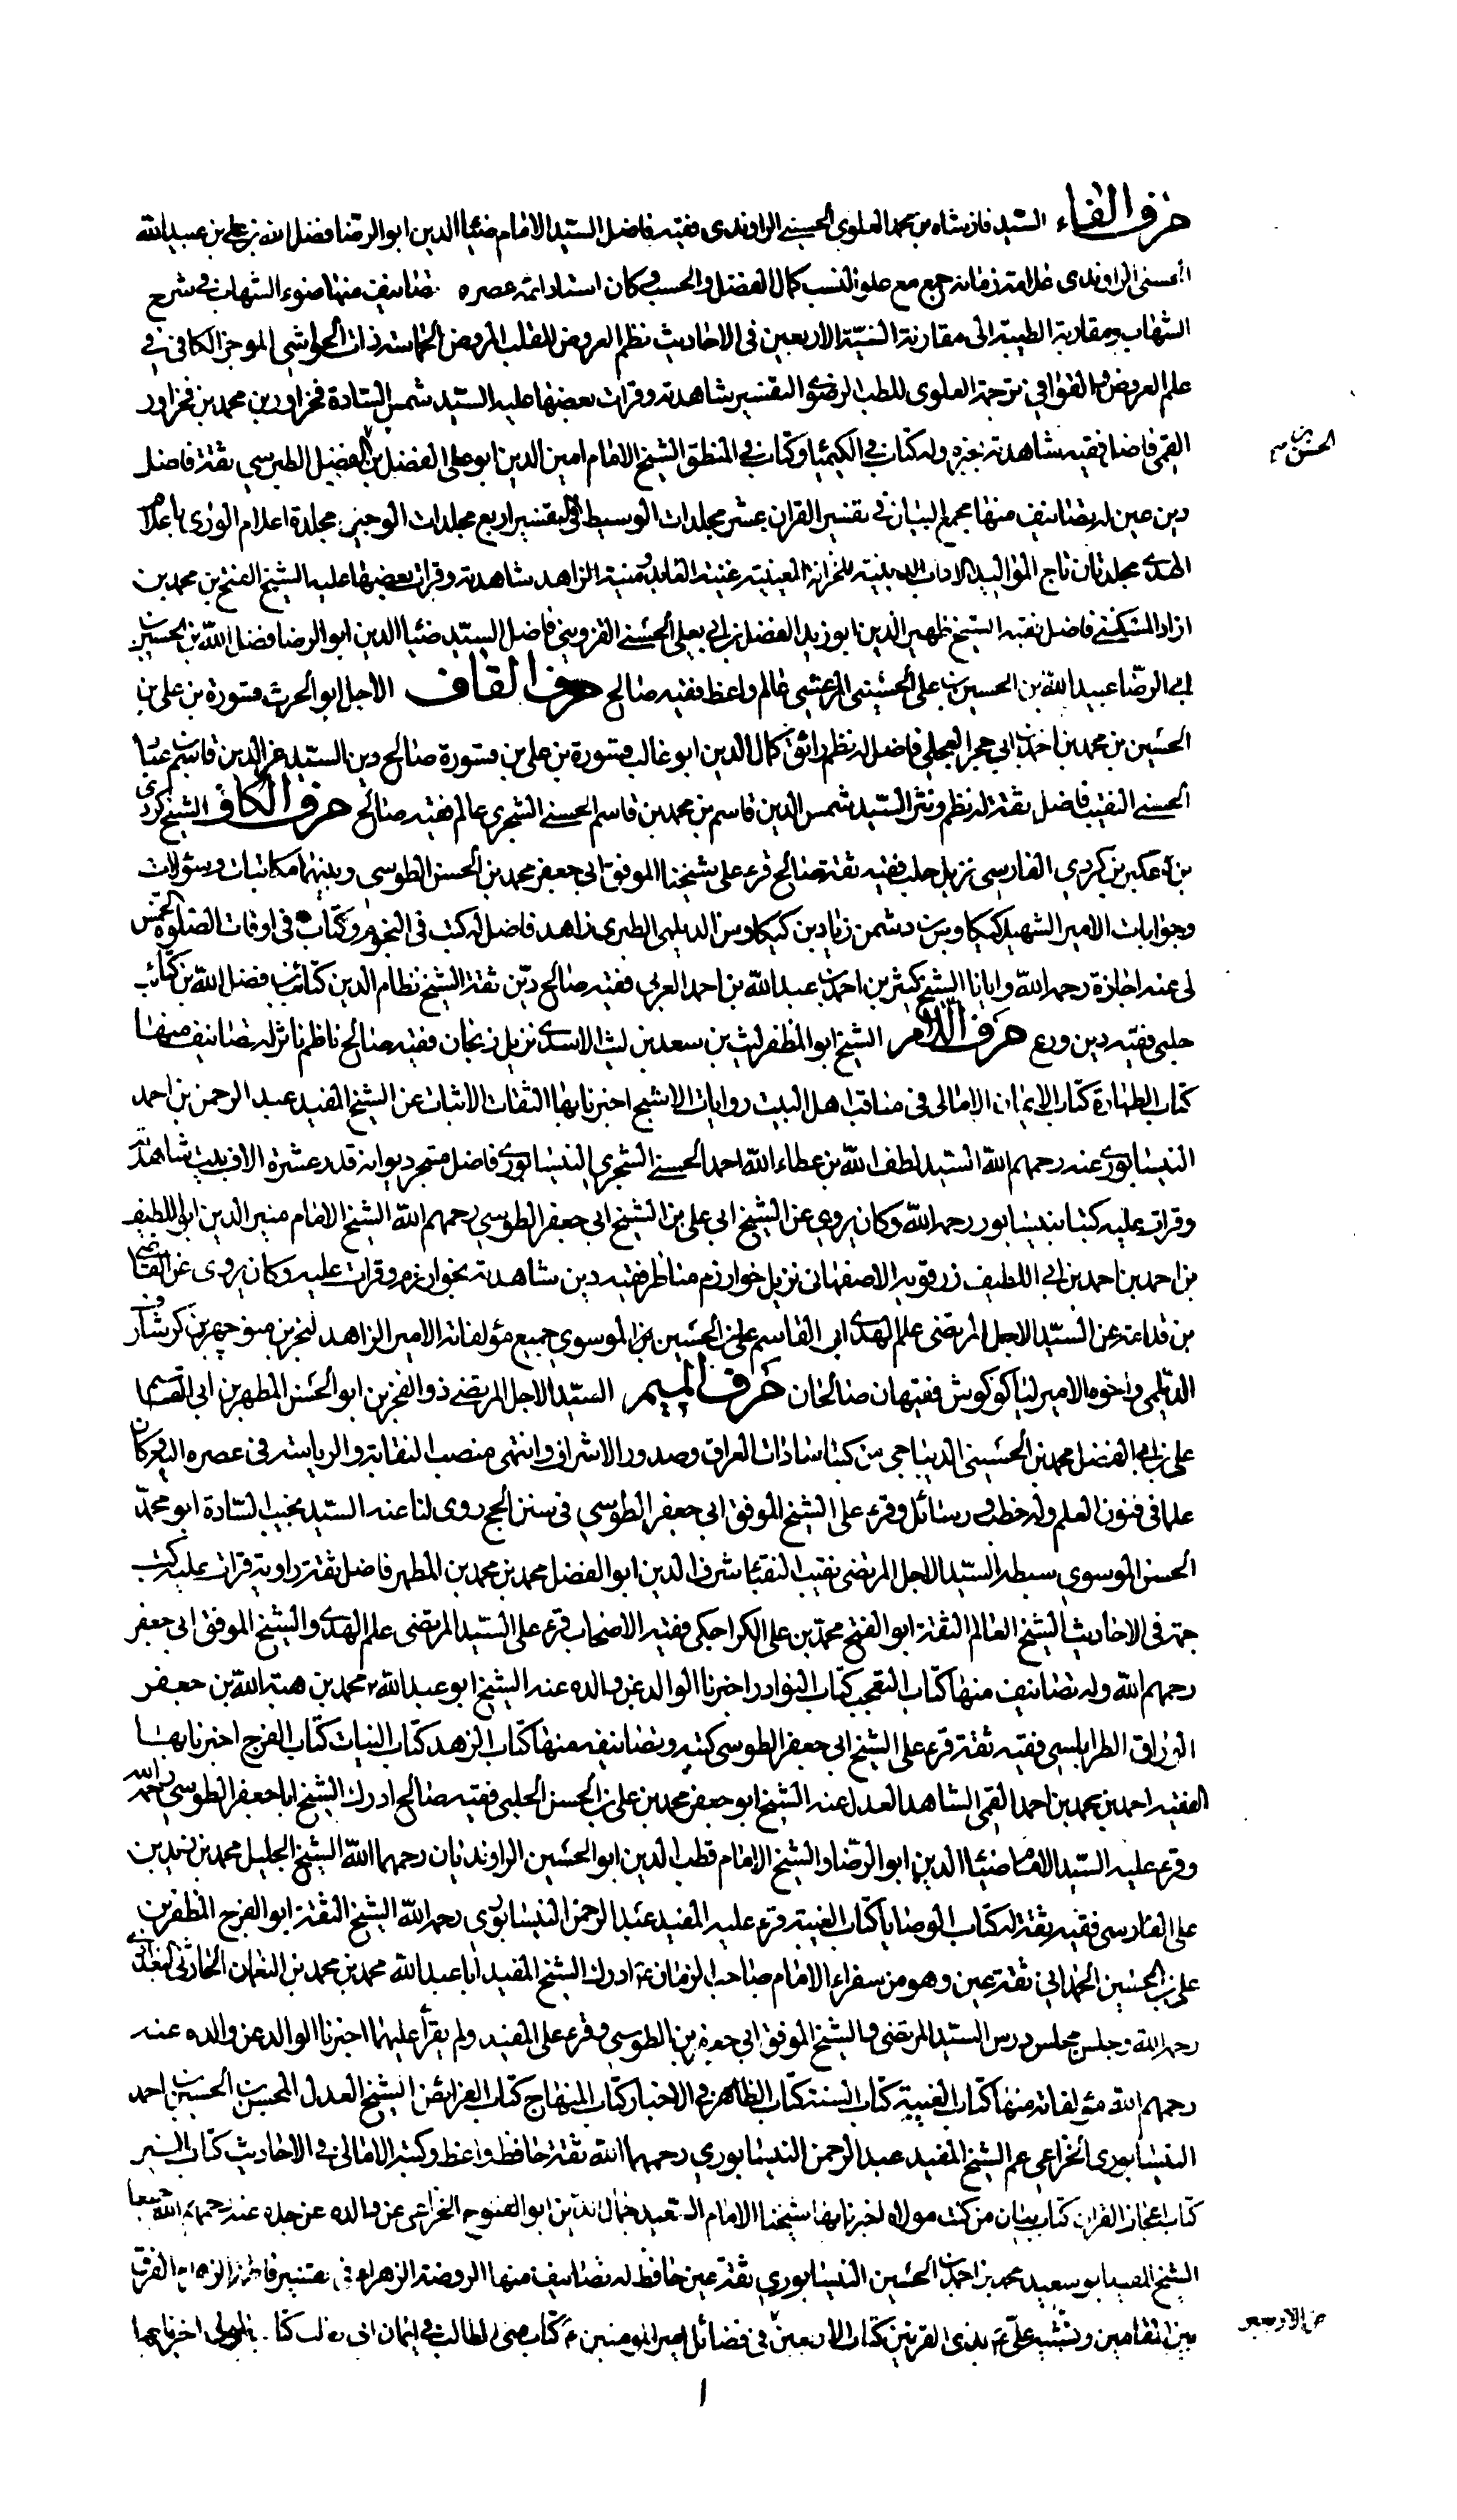 حرف الفاء السيد فاذشاه بن محمد العلوي الحسيني الراوندي فقيه فاضل السيد الامام ضياء الدين ابو الرضا فضل الله بن علي بن عبيد الله
الحسني الراوندي علامة زمانه جمع مع علو النسب كمال الفضل والحسب وكان استاد ائمة عصره تصانيف منها ضوء الشهاب في شرح
الشهاب ومقاربة الطيبة الى مقارنة النية الاربعين في الاحاديث نظم العروض للقلب المروض الحماسة ذات الحواشي الموجز الكافي في
علم العروض والقوافي ترجمة العلوي للطب الرضوي التفسير شاهدته وقرات بعضها عليه السيد شمس السادة فخراور بن محمد بن فخراور
القمي فاضل فقيه شاهدته وله كتاب في الكيميا وكتاب في المنطق الشيخ الامام امين الدين ابو علي الفضل بن الفضل الطبرسي ثقة فاضل
الحسن بن
دين عين له تصانيف منها مجمع البيان في تفسير القران عشر مجلدات الوسيط في التفسير اربع مجلدات الوجيز مجلدة اعلام الورى باعلام
الهدى مجلدتان تاج المواليد الاداب الدينية للخزانة المعينية غنية العابد ومنية الزاهد شاهدته وقرات بعضها عليه الشيخ الفتح بن محمد بن
ازاد المسكني فاضل فقيه الشيخ ظهير الدين ابو زيد الفضل بن ابي يعلي الحسني القزويني فاضل السيد ضياء الدين ابو الرضا فضل الله بن الحسين بن
ابي الرضا عبيد الله بن الحسين بن علي الحسيني المرعشي عالم واعظ فقيه صالح حرف القاف الاجل ابو الحرث قسورة بن علي بن
الحسين بن محمد بن احمد بن ابي حجر العجلي فاضل له نظم رائق كمال الدين ابو غالب قسورة بن علي بن قسورة صالح دين السيد عز الدين قاسم بن عباد
الحسني النقيب فاضل ثقة له نظم ونثر السيد شمس الدين قاسم بن محمد بن قاسم الحسني الشجري عالم فقيه صالح حرف الكاف الشيخ كردي
بن عكبر بن كردي الفارسي نزيل حلب فقيه ثقة صالح قرء على شيخنا الموفق ابي جعفر محمد بن الحسن الطوسي وبينهما مكاتبات وسؤالات
وجوابات الامير الشهيد كيكاوس بن دشمن زيار بن كيكاوس الديلمي الطبري زاهد فاضل له كتب في النجوم وكتاب في اوقات الصلوة الخمس
لي عنه اجازة رحمه الله وايانا الشيخ كثير بن احمد بن عبد الله بن احمد العربي فقيه صالح دين ثقة الشيخ نظام الدين كتائب بن فضل الله بن كتائب
حلبي فقيه دين ورع حرف اللام الشيخ ابو المظفر ليث بن سعد بن ليث الاسدي نزيل زنجان فقيه صالح ناظم ناثر له تصانيف منها
كتاب الطهارة كتاب الايمان الامالي في مناقب اهل البيت روايات الاشج اخبرنا بها الثقات الاثبات عن الشيخ المفيد عبد الرحمن بن احمد
النيسابوري عنه رحمهم الله السيد لطف الله بن عطاء الله احمد الحسني الشجري النيسابوري فاضل متبحر ديوانه قدر عشرة الاف بيت شاهدته
وقرات عليه كتبا بنيسابور رحمه الله وكان يروي عن الشيخ ابي علي بن الشيخ ابي جعفر الطوسي رحمهم الله الشيخ الامام منير الدين ابو اللطيف
بن احمد بن احمد بن ابي اللطيف زرقويه الاصفهاني نزيل خوارزم مناظر فقيه دين شاهدته بخوارزم وقرات عليه وكان يروي عن القاضي
بن قدامة عن السيد الاجل المرتضى علم الهدى ابي القاسم علي بن الحسين بن الموسوي جميع مؤلفاته الامير الزاهد لنجر بن منوچهر بن كرشاز
الديلمي واخوه الامير لياكوكوش فقيهان صالحان حرف الميم السيد الاجل المرتضى ذو الفخرين ابو الحسن المطهر بن ابي القسم
علي بن ابي الفضل محمد بن الحسيني الديباجي من كبار سادات العراق وصدور الاشراف وانتهى منصب النقابة والرياسة في عصره اليه وكان
علما في فنون العلم وله خطب ورسائل وقرء على الشيخ الموفق ابي جعفر الطوسي في سفر الحج روى لنا عنه السيد نجيب السادة ابو محمد
الحسن الموسوي سبطه السيد الاجل المرتضى نقيب النقباء شرف الدين ابو الفضل محمد بن محمد بن المطهر فاضل ثقة راوية قرات عليه كتب
جمة في الاحاديث الشيخ العالم الثقة ابو الفتح محمد بن علي الكراجكي فقيه الاصحاب قرء على السيد المرتضى علم الهدى والشيخ الموفق ابي جعفر
رحمهم الله وله تصانيف منها كتاب التعجب كتاب النوادر اخبرنا الوالد عن والده عنه الشيخ ابو عبد الله محمد بن هبة الله بن جعفر
الوراق الطرابلسي فقيه ثقة قرء على الشيخ ابي جعفر الطوسي كتبه وتصانيفه منها كتاب الزهد كتاب النيات كتاب الفرج اخبرنا بها
الفقيه احمد بن محمد بن احمد القمي الشاهد العدل عنه الشيخ ابو جعفر محمد بن علي بن الحسن الحلبي فقيه صالح ادرك الشيخ ابا جعفر الطوسي رحمه الله
وقرء عليه السيد الامام ضياء الدين ابو الرضا والشيخ الامام قطب الدين ابو الحسين الراونديان رحمهما الله الشيخ الجليل محمد بن زيد بن
علي الفارسي فقيه ثقة له كتاب الوصايا كتاب الغيبة قرء عليه المفيد عبد الرحمن النيسابوري رحمه الله الشيخ الثقة ابو الفرج المظفر بن
علي بن الحسين الحمداني ثقة عين وهو من سفراء الامام صاحب الزمان ع ادرك الشيخ المفيد ابا عبد الله محمد بن محمد بن النعمان الحارثي البغدادي
رحمه الله وجلس مجلس درس السيد المرتضى والشيخ الموفق ابي جعفر بن الطوسي وقرء على المفيد ولم يقرأ عليهما اخبرنا الوالد عن والده عنه
رحمهم الله مؤلفاته منها كتاب الغيبة كتاب السنة كتاب الظاهر في الاخبار كتاب المنهاج كتاب الفرائض الشيخ العدل المحسن بن الحسين بن احمد
النيسابوري الخزاعي عم الشيخ المفيد عبد الرحمن النيسابوري رحمهما الله ثقة حافظ واعظ وكتبه الامالي في الاحاديث كتاب السير
كتاب اعجاز القران كتاب بيان من كنت مولاه اخبرنا بها شيخنا الامام السعيد جمال الدين ابو الفتوح الخزاعي عن والده عن جده عنه رحمهم الله جميعا
الشيخ المفيد ابو سعيد محمد بن احمد بن الحسين النيسابوري ثقة عين حافظ له تصانيف منها الروضة الزهراء في تفسير فاطمة الزهراء الفرق
بين المقامين وتشبيه علي ع بذي القرنين كتاب الاربعين في فضائل امير المؤمنين ع كتاب منى الطالب في ايمان ابي طالب كتاب المولى اخبرنا بها
ا